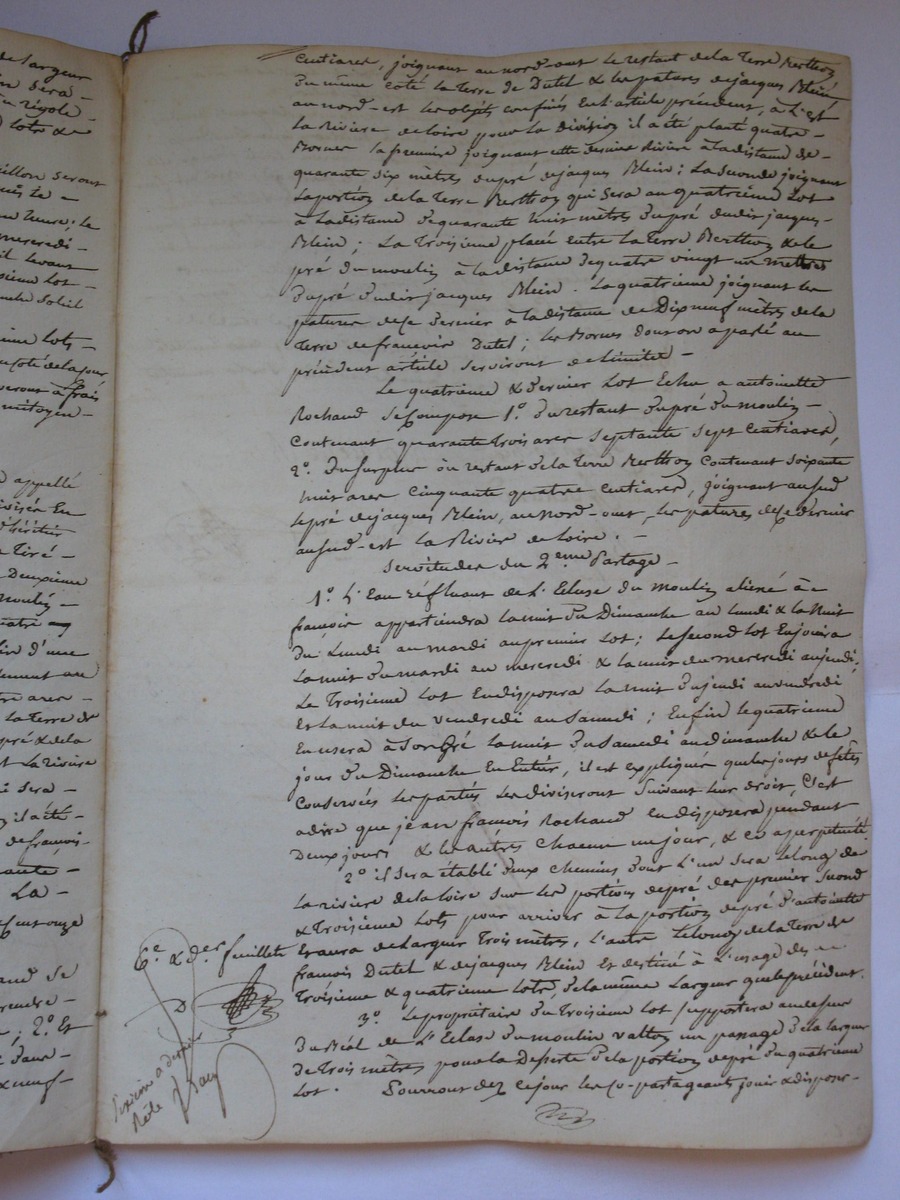 de largeur
sera -
rigole -
lots &
seront
heure; le
mercredi -
levant
lot -
soleil
lots -
côté de la cour
à frais
mitoyen -
appellé
divisés En
d'héritier
Tiré -
Deuxieme
moulin -
quatre
d'une
ares -
la Terre de
pré & de la
la riviere
sera -
il a été -
de françois -
La -
onze
se
prendre -
; 2.° Et
dans -
neuf -
Centiares, joignant au nord-ouest le restant de la Terre Berthon
Du même coté la Terre de Dutel & les patures de jacques Blein
au nord-est les objets confinés En l'article précédent, à L'est
La Riviere de loire pour la division il a été planté quatre -
Bornes la premiere joignant cette derniere Riviere à la distance de -
quarante six mètres du pré de jacques Blein; La seconde joignant
La portion de la Terre Berthon qui sera au quatrieme Lot
à La distance de quarante huit mètres du pré dudit jacques -
Blein; La Troisieme placée entre la Terre Berthon & le
pré du moulin à la distance de quatre vingt un mettres
du pré dudit jacques Blein. La quatrieme joignant les
patures de ce dernier à la distance de Dix neuf mètres de la
Terre de francois Dutel; les Bornes dont on a parlé au
précédent article serviront de Limites -
Le quatrieme & dernier Lot Echu a antoinette
Rochaud se Compose 1.° du restant du pré du moulin -
Contenant quarante trois ares septante sept Centiares,
2.° Du surplus ou restant de la Terre Berthon Contenant soixante
huit ares Cinquante quatre centiares, joignant au sud
le pré de jacques Blein, au nord-ouest, les patures de ce dernier
au sud-est la Riviere de Loire. -
Servitudes du 2.eme Partage -
1.° L'Eau réfluant de L'Ecluse du moulin aliené à -
françois appartiendra la nuit du Dimanche au lundi & la nuit
du Lundi au mardi au premier Lot; Le second lot En jouira
La nuit du mardi au mercredi & la nuit du mercredi au jeudi;
Le Troisieme Lot En disposera la nuit du jeudi au vendredi
Et la nuit du vendredi au Samedi; Enfin le quatrieme
En usera à son gré la nuit du Samedi au dimanche & le
jour du Dimanche En Entier, il est expliqué que les jours de fêtes
Conservées les parties les diviseront suivant leur droit, C'est
adire que jean francois Rochaud en disposera pendant
Deux jours & les autres chacun un jour, & ce a perpetuité.
2.° il sera établi deux chemins dont L'un sera le long de
La riviere de la loire sur les portions de pré des premier second
& Troisieme Lots pour arriver à la portion de pré d'antoinette
Et aura de Largeur Trois mètres, L'autre Le long de la Terre de
francois Dutel & de jacques Blein Et destiné à L'usage des -
Troisieme & quatrieme lots, de la même Largeur que le précédent.
3.° Le proprietaire du Troisieme lot supportera au dessus
Du Bial de L'Ecluse du moulin vallon un passage de la largeur
de Trois mètres pour la Desserte de la portion de pré du quatrieme
Lot. Pourront dez ce jour les Co-partageants jouir & disposer -
6.e & der feuillet
D
sixieme & dernier
Rôle